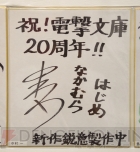 祝!電撃文庫
20周年!!
はじめ
なかむら
新作鋭意製作中